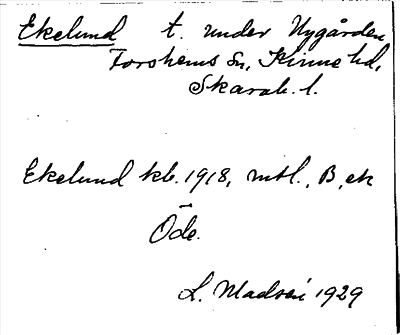 Ekelund t. under Nygården
Forshems sn, Kinne hd,
Skarab. l.
Ekelund kb. 1918, mtl., B, ek
Öde.
L. Madsén 1929